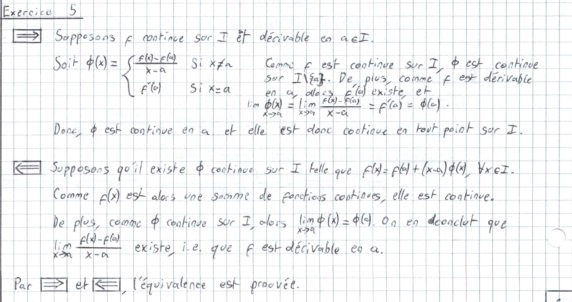 Exercice 5
⟹ Supposons f continue sur I et dérivable en a∈I.
Soit ϕ(x) = { f(x)-f(a) / x-a si x≠a
f'(a) si x=a
Comme f est continue sur I, ϕ est continue
sur I\{a}. De plus, comme f est dérivable
en a, alors f'(a) existe, et
lim x→a ϕ(x) = lim x→a f(x)-f(a) / x-a = f'(a) = ϕ(a).
Donc, ϕ est continue en a et elle est donc continue en tout point sur I.
⟸ Supposons qu'il existe ϕ continue sur I telle que f(x) = f(a) + (x-a)ϕ(x), ∀x∈I.
Comme f(x) est alors une somme de fonctions continues, elle est continue.
De plus, comme ϕ continue sur I, alors lim x→a ϕ(x) = ϕ(a). On en déconclut que
lim x→a f(x)-f(a) / x-a existe, i.e. que f est dérivable en a.
Par ⟹ et ⟸, l'équivalence est prouvée.